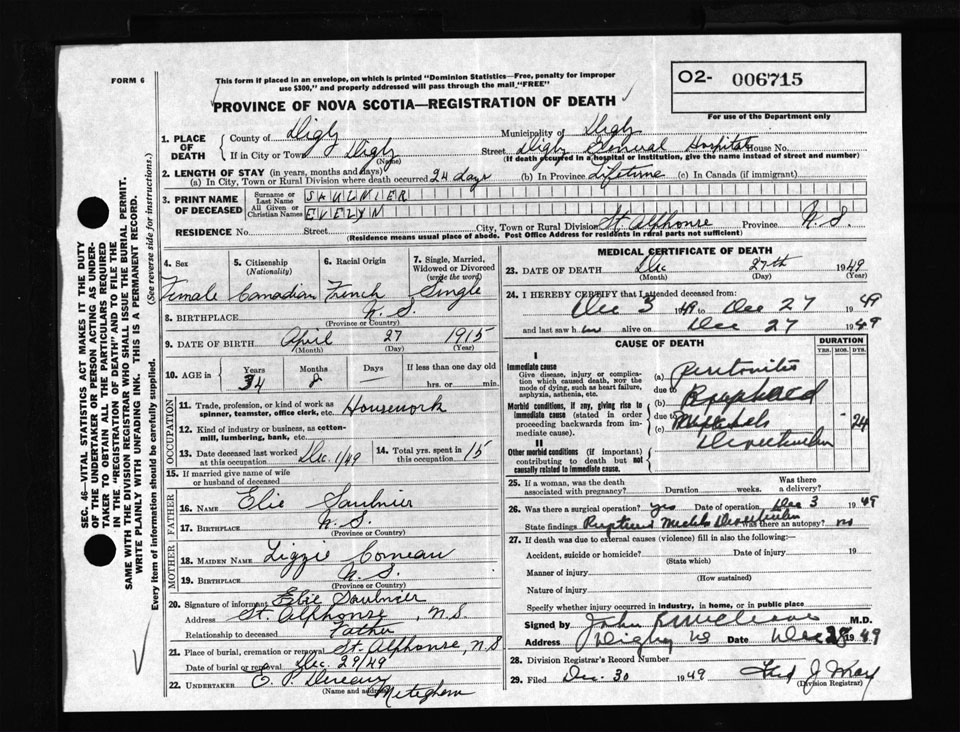 FORM 6
This form if placed in an envelope, on which is printed "Dominion Statistics—Free, penalty for improper
use $300," and properly addressed will pass through the mail "FREE"
O2- 006715
For use of the Department only
PROVINCE OF NOVA SCOTIA—REGISTRATION OF DEATH
SEC. 46—VITAL STATISTICS ACT MAKES IT THE DUTY
OF THE UNDERTAKER OR PERSON ACTING AS UNDER-
TAKER TO OBTAIN ALL THE PARTICULARS REQUIRED
IN THE "REGISTRATION OF DEATH" AND TO FILE THE
SAME WITH THE DIVISION REGISTRAR WHO SHALL ISSUE THE BURIAL PERMIT.
WRITE PLAINLY WITH UNFADING INK. THIS IS A PERMANENT RECORD.
Every item of information should be carefully supplied. (See reverse side for instructions.)
1. PLACE OF DEATH
County of Digby Municipality of Digby
If in City or Town Digby (Name) Street Digby General Hospital House No.
(If death occurred in a hospital or institution, give the name instead of street and number)
2. LENGTH OF STAY (in years, months and days)
(a) In City, Town or Rural Division where death occurred 24 days (b) In Province Lifetime (c) In Canada (if immigrant)
3. PRINT NAME OF DECEASED
Surname or Last Name SAULNIER
All Given or Christian Names EVELYN
RESIDENCE No. Street City, Town or Rural Division St. Alphonse Province N.S.
(Residence means usual place of abode. Post Office Address for residents in rural parts not sufficient)
4. Sex Female
5. Citizenship (Nationality) Canadian
6. Racial Origin French
7. Single, Married, Widowed or Divorced (write the word) Single
8. BIRTHPLACE N.S. (Province or Country)
9. DATE OF BIRTH April 27 1915
(Month) (Day) (Year)
10. AGE in Years 34 Months 8 Days — If less than one day old hrs. or min.
OCCUPATION
11. Trade, profession, or kind of work as spinner, teamster, office clerk, etc. Housework
12. Kind of industry or business, as cotton-mill, lumbering, bank, etc.
13. Date deceased last worked at this occupation Dec. 1/49
14. Total yrs. spent in this occupation 15
15. If married give name of wife or husband of deceased
FATHER
16. NAME Elie Saulnier
17. BIRTHPLACE N.S. (Province or Country)
MOTHER
18. MAIDEN NAME Lizzie Comeau
19. BIRTHPLACE N.S. (Province or Country)
20. Signature of informant Elie Saulnier
Address St. Alphonse, N.S.
Relationship to deceased Father
21. Place of burial, cremation or removal St. Alphonse, N.S
Date of burial or removal Dec. 29/49
22. UNDERTAKER E. P. Meteghan
(Name and address)
MEDICAL CERTIFICATE OF DEATH
23. DATE OF DEATH Dec 27th 1949
(Month) (Day) (Year)
24. I HEREBY CERTIFY that I attended deceased from:
Dec 3 1949 to Dec 27 1949
and last saw h er alive on Dec 27 1949
CAUSE OF DEATH
DURATION
YRS. MOS. DYS.
I
Immediate cause
Give disease, injury or complication which caused death, not the mode of dying, such as heart failure, asphyxia, asthenia, etc.
(a) Peritonitis
due to
Morbid conditions, if any, giving rise to immediate cause (stated in order proceeding backwards from immediate cause).
(b) Ruptured
due to
(c) Meckels Diverticulum - 24
II
Other morbid conditions (if important) contributing to death but not causally related to immediate cause.
25. If a woman, was the death associated with pregnancy? Duration weeks. Was there a delivery?
26. Was there a surgical operation? yes Date of operation Dec 3 1949
State findings Ruptured Meckels Diverticulum Was there an autopsy? no
27. If death was due to external causes (violence) fill in also the following:—
Accident, suicide or homicide? Date of injury 19
(State which)
Manner of injury
(How sustained)
Nature of injury
Specify whether injury occurred in industry, in home, or in public place
Signed by John R M.D.
Address Digby NS Date Dec 28 1949
28. Division Registrar's Record Number
29. Filed Dec. 30 1949 Fred J. May
(Division Registrar)